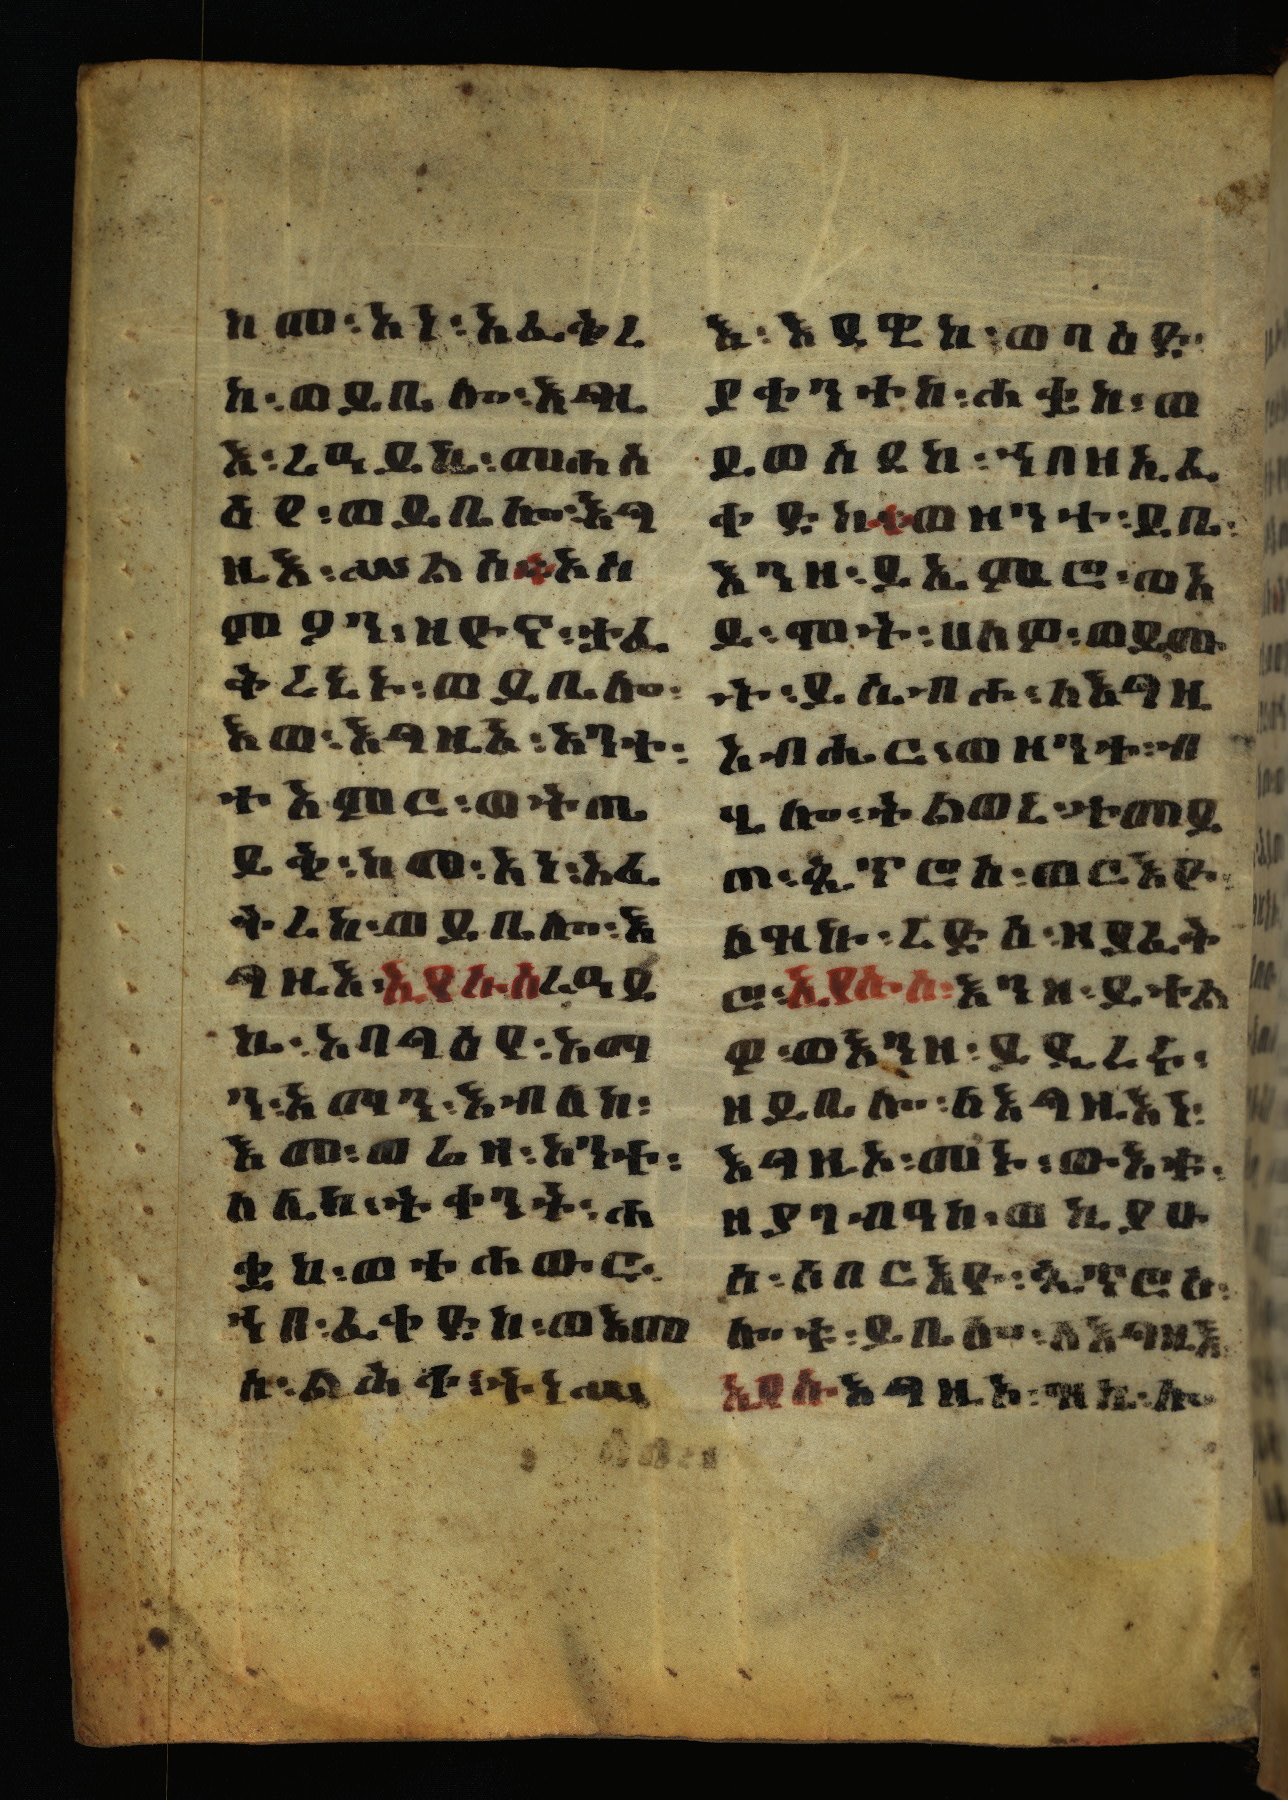 ከመ፡አነ፡አፈቅረ
ከ፡ወይቤሎ፡እግዚ
እ፡ረዓይኬ፡መሐስ
ዕየ፡ወይቤሎ፡እግ
ዚእ፡ሣልሰ፡እስ
ምዖን፡ዘዮና፡ታፈ
ቅረኒኑ፡ወይቤሎ፡
እወ፡እግዚእ፡አንተ፡
ተአምር፡ወትጤ
ይቅ፡ከመ፡አነ፡አፈ
ቅረከ፡ወይቤሎ፡እ
ግዚእ፡ኢየሱስ፡ረዓይ
ኬ፡አባግዕየ፡አማ
ን፡አማን፡እብለከ፡
አመ፡ወሬዛ፡አንተ፡
ለሊከ፡ትቀንት፡ሐ
ቌከ፡ወተሐውር፡
ኀበ፡ፈቀድከ፡ወእመ
ሰ፡ልሕቀ፡ትነሣ
እ፡እደዊከ፡ወባዕድ፡
ያቀንተከ፡ሐቌከ፡ወ
ይወስደከ፡ኀበ፡ዘኢፈ
ቀድከ፡ወዘንተ፡ይቤ፡
እንዘ፡ይኤምሮ፡ወአ
ይ፡ሞት፡ሀለዎ፡ወይመ
ት፡ይሴብሕ፡ለእግዚ
አብሔር፡ወዘንተ፡ብ
ሂሎ፡ትልወኒ፡ተመይ
ጠ፡ጴጥሮስ፡ወርእዮ፡
ለዝኩ፡ረድእ፡ዘያፈቅ
ሮ፡ኢየሱስ፡እንዘ፡ይተል
ዎ፡ወእንዘ፡ይደረር፡
ዘይቤሎ፡ለእግዚእነ፡
እግዚኦ፡መኑ፡ውእቱ፡
ዘያገብአከ፡ወኪያሁ
ሰ፡ሶበ፡ርእየ፡ጴጥሮስ፡
ሎቱ፡ይቤሎ፡ለእግዚእ
ኢየሱ፡እግዚኦ፡ዝኬ፡ሎ